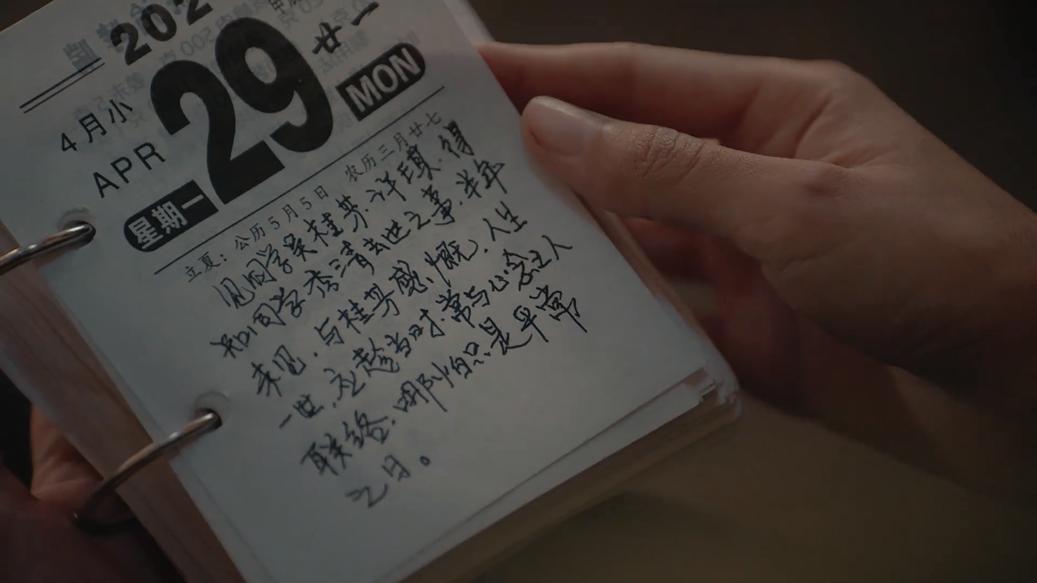 202
29
廿一
MON
4月小
APR
星期一
立夏：公历5月5日 农历三月廿七
见旧学吴桂芬.详瑱.得
知同学秀清去世之事.半年
未见，与桂芬感慨，人生
一世，应趁当时.常与心念之人
联络.哪怕只是平常
之日。